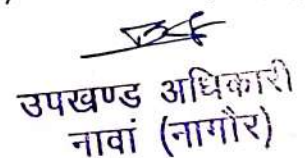 उपखण्ड अधिकारी
नावां (नागौर)